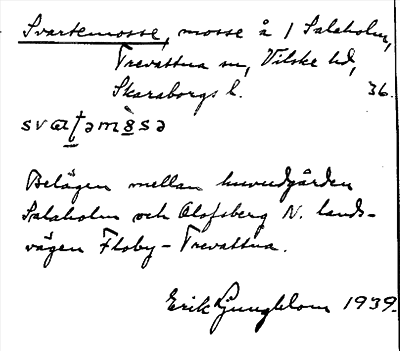 Svartemosse, mosse å 1 Salaholm,
Trevattna sn, Vilske hd,
Skaraborgs l. 36.
Belägen mellan huvudgården
Salaholm och Olofsberg N. lands-
vägen Floby - Trevattna.
Erik Ljungblom 1939.